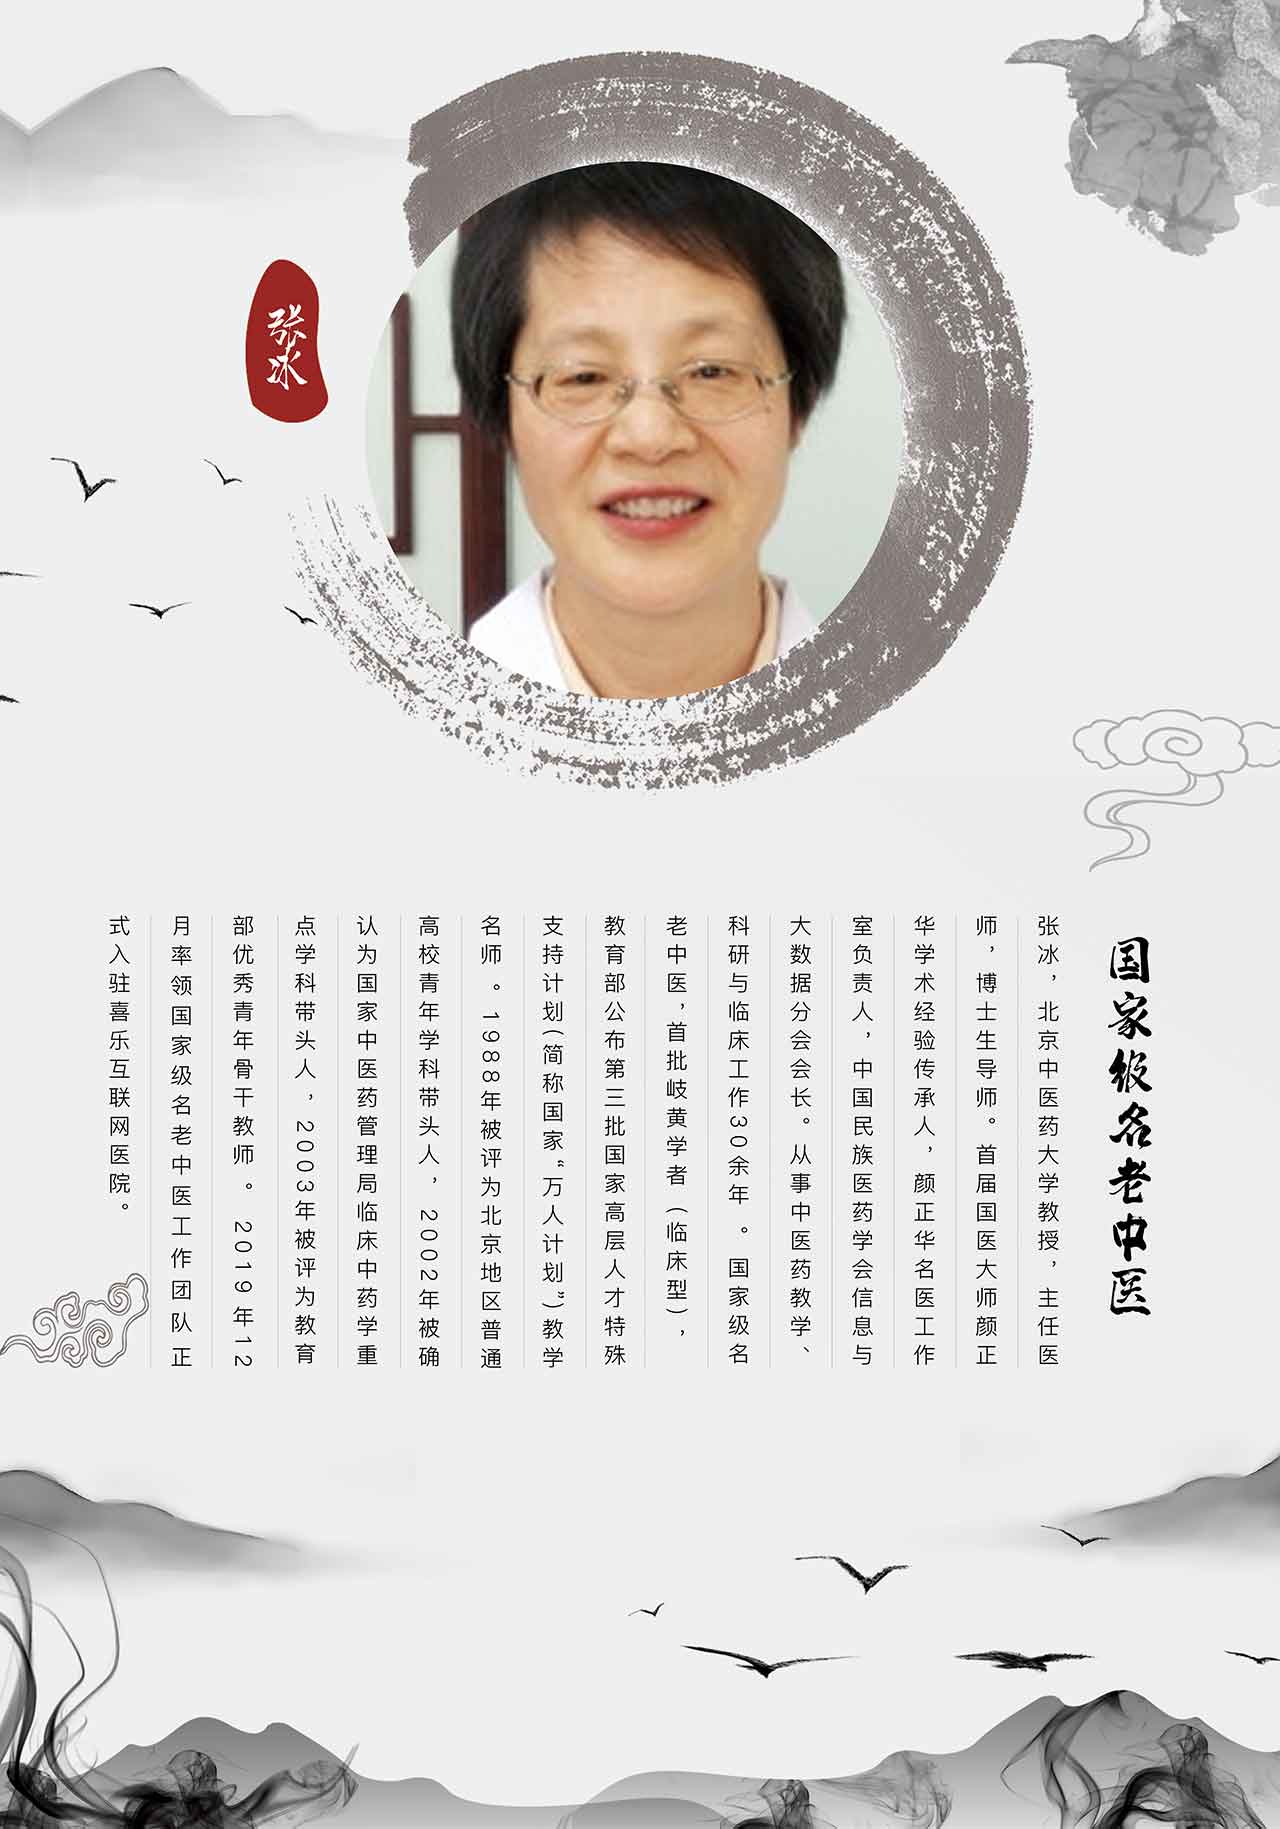 张冰
国家级名老中医
张冰，北京中医药大学教授，主任医
师，博士生导师。首届国医大师颜正
华学术经验传承人，颜正华名医工作
室负责人，中国民族医药学会信息与
大数据分会会长。从事中医药教学、
科研与临床工作30余年 。国家级名
老中医，首批岐黄学者（临床型），
教育部公布第三批国家高层人才特殊
支持计划(简称国家“万人计划”)教学
名师 。1988年被评为北京地区普通
高校青年学科带头人，2002年被确
认为国家中医药管理局临床中药学重
点学科带头人，2003年被评为教育
部优秀青年骨干教师 。 2019年12
月率领国家级名老中医工作团队正
式入驻喜乐互联网医院。